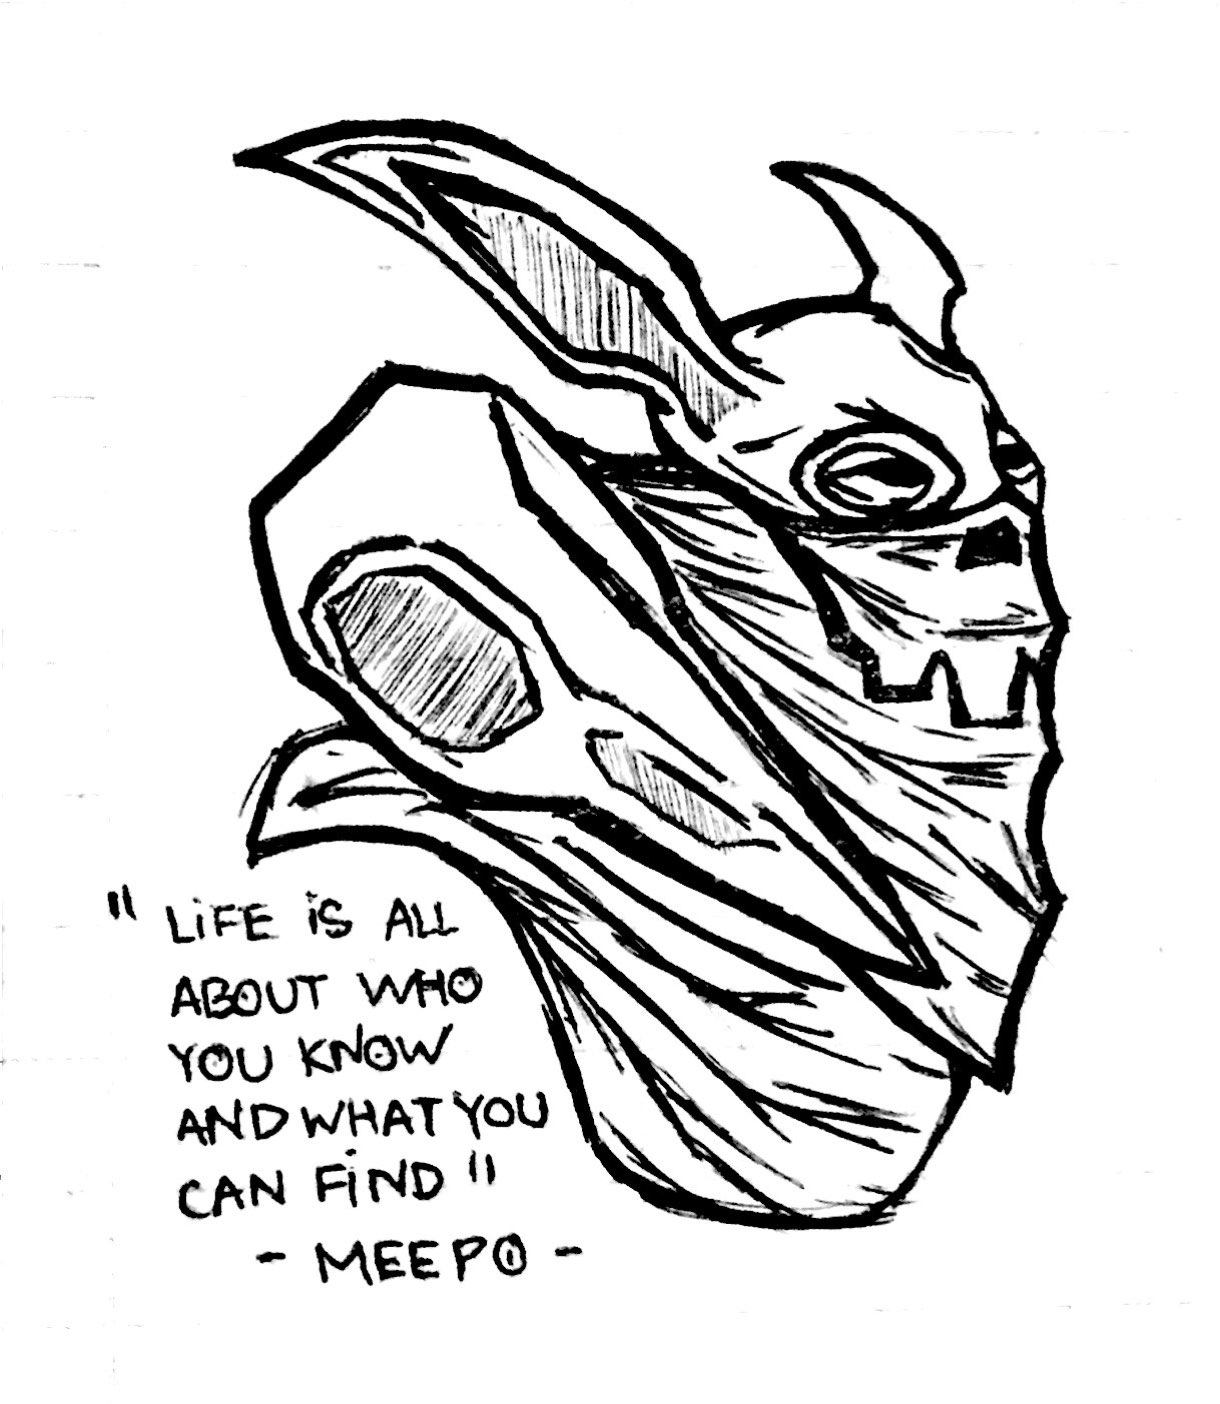 " LiFE iS ALL
ABOUT WHO
YOU KNOW
AND WHAT YOU
CAN FiND "
- MEEPO -